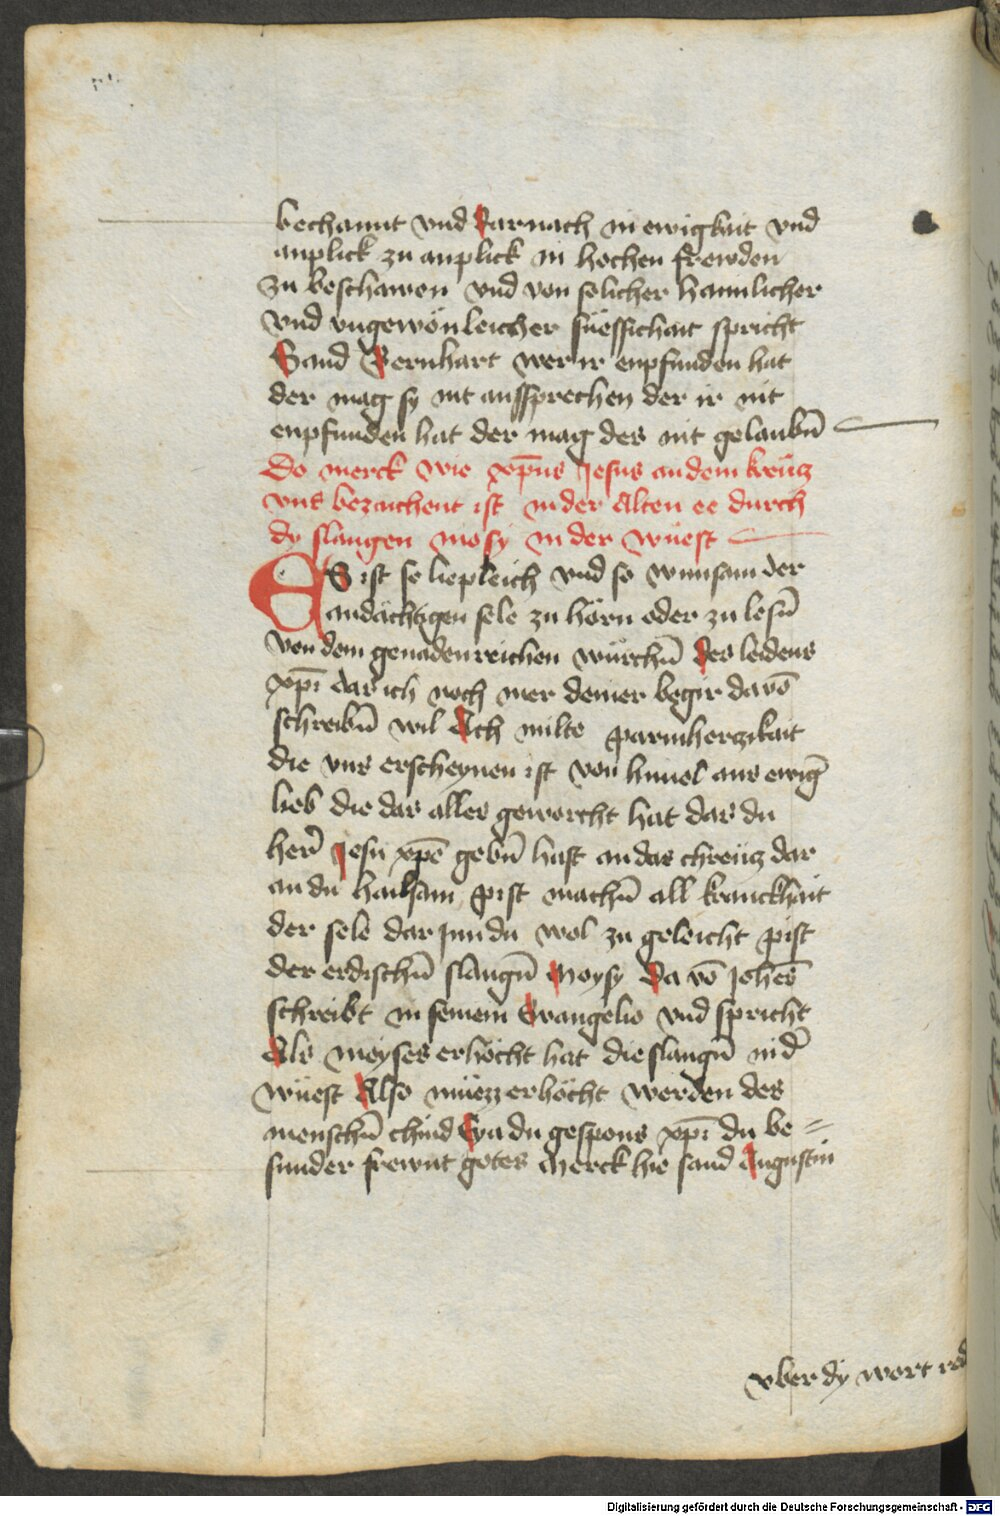 bechannt vnd darnach in ewigkait vnd
anplick zu anplick in hochen frewden
zu beschawen vnd von solicher haimlicher
vnd vngewönleicher süessichait spricht
Sand Bernhart wer ir enpfunden hat
der mag sy nit aussprechen der ir nit
enpfunden hat der mag des nit gelaubn̄
Do merck wie xp̄us Jesus an dem kreücz
vns bezaichent ist in der alten ee durch
dy slangen moysi in der wüest
ES ist so liepleich vnd so wunsam der
andächtigen sele zu hörn oder zu lesn̄
von dem genadenreichen würchn̄ des leidens
xp̄i das ich noch mer deiner begir dauō
schreibn̄ wil Ach milte parmherczikait
die vns erscheynen ist von himel aus ewiḡ
lieb die das alles geworcht hat das du
her̄ Jesu xp̄e gebn̄ hast an das chreücz dar
an du hailsam pist machn̄ all kranckhait
der sele dar jnn du wol zu geleicht pist
der erdischn̄ slangn̄ Moysy Da vō Joh̄es
schreibt in seinem Ewangelio vnd spricht
Als moyses erhöcht hat die slangn̄ in d̄
wüest Also müezz erhöcht werden des
menschn̄ chind Eya du gespons xp̄i du be=
sunder frewnt gotes Merck hie sand Augustin
vber dy wort
Digitalisierung gefördert durch die Deutsche Forschungsgemeinschaft - DFG